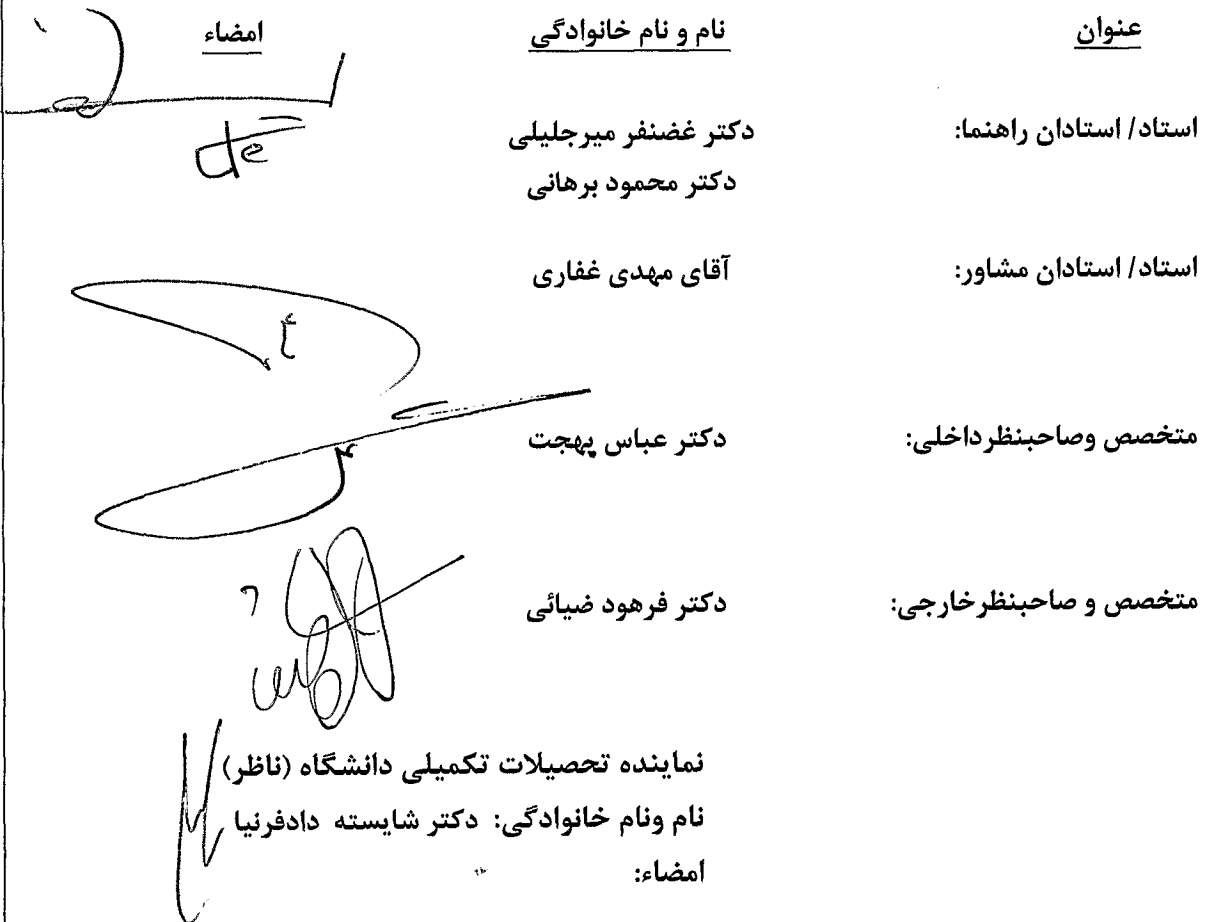 عنوان نام و نام خانوادگی امضاء
استاد/ استادان راهنما: دکتر غضنفر میرجلیلی
دکتر محمود برهانی
استاد/ استادان مشاور: آقای مهدی غفاری
متخصص وصاحبنظرداخلی: دکتر عباس بهجت
متخصص و صاحبنظرخارجی: دکتر فرهود ضیائی
نماینده تحصیلات تکمیلی دانشگاه (ناظر)
نام ونام خانوادگی: دکتر شایسته دادفرنیا
امضاء: